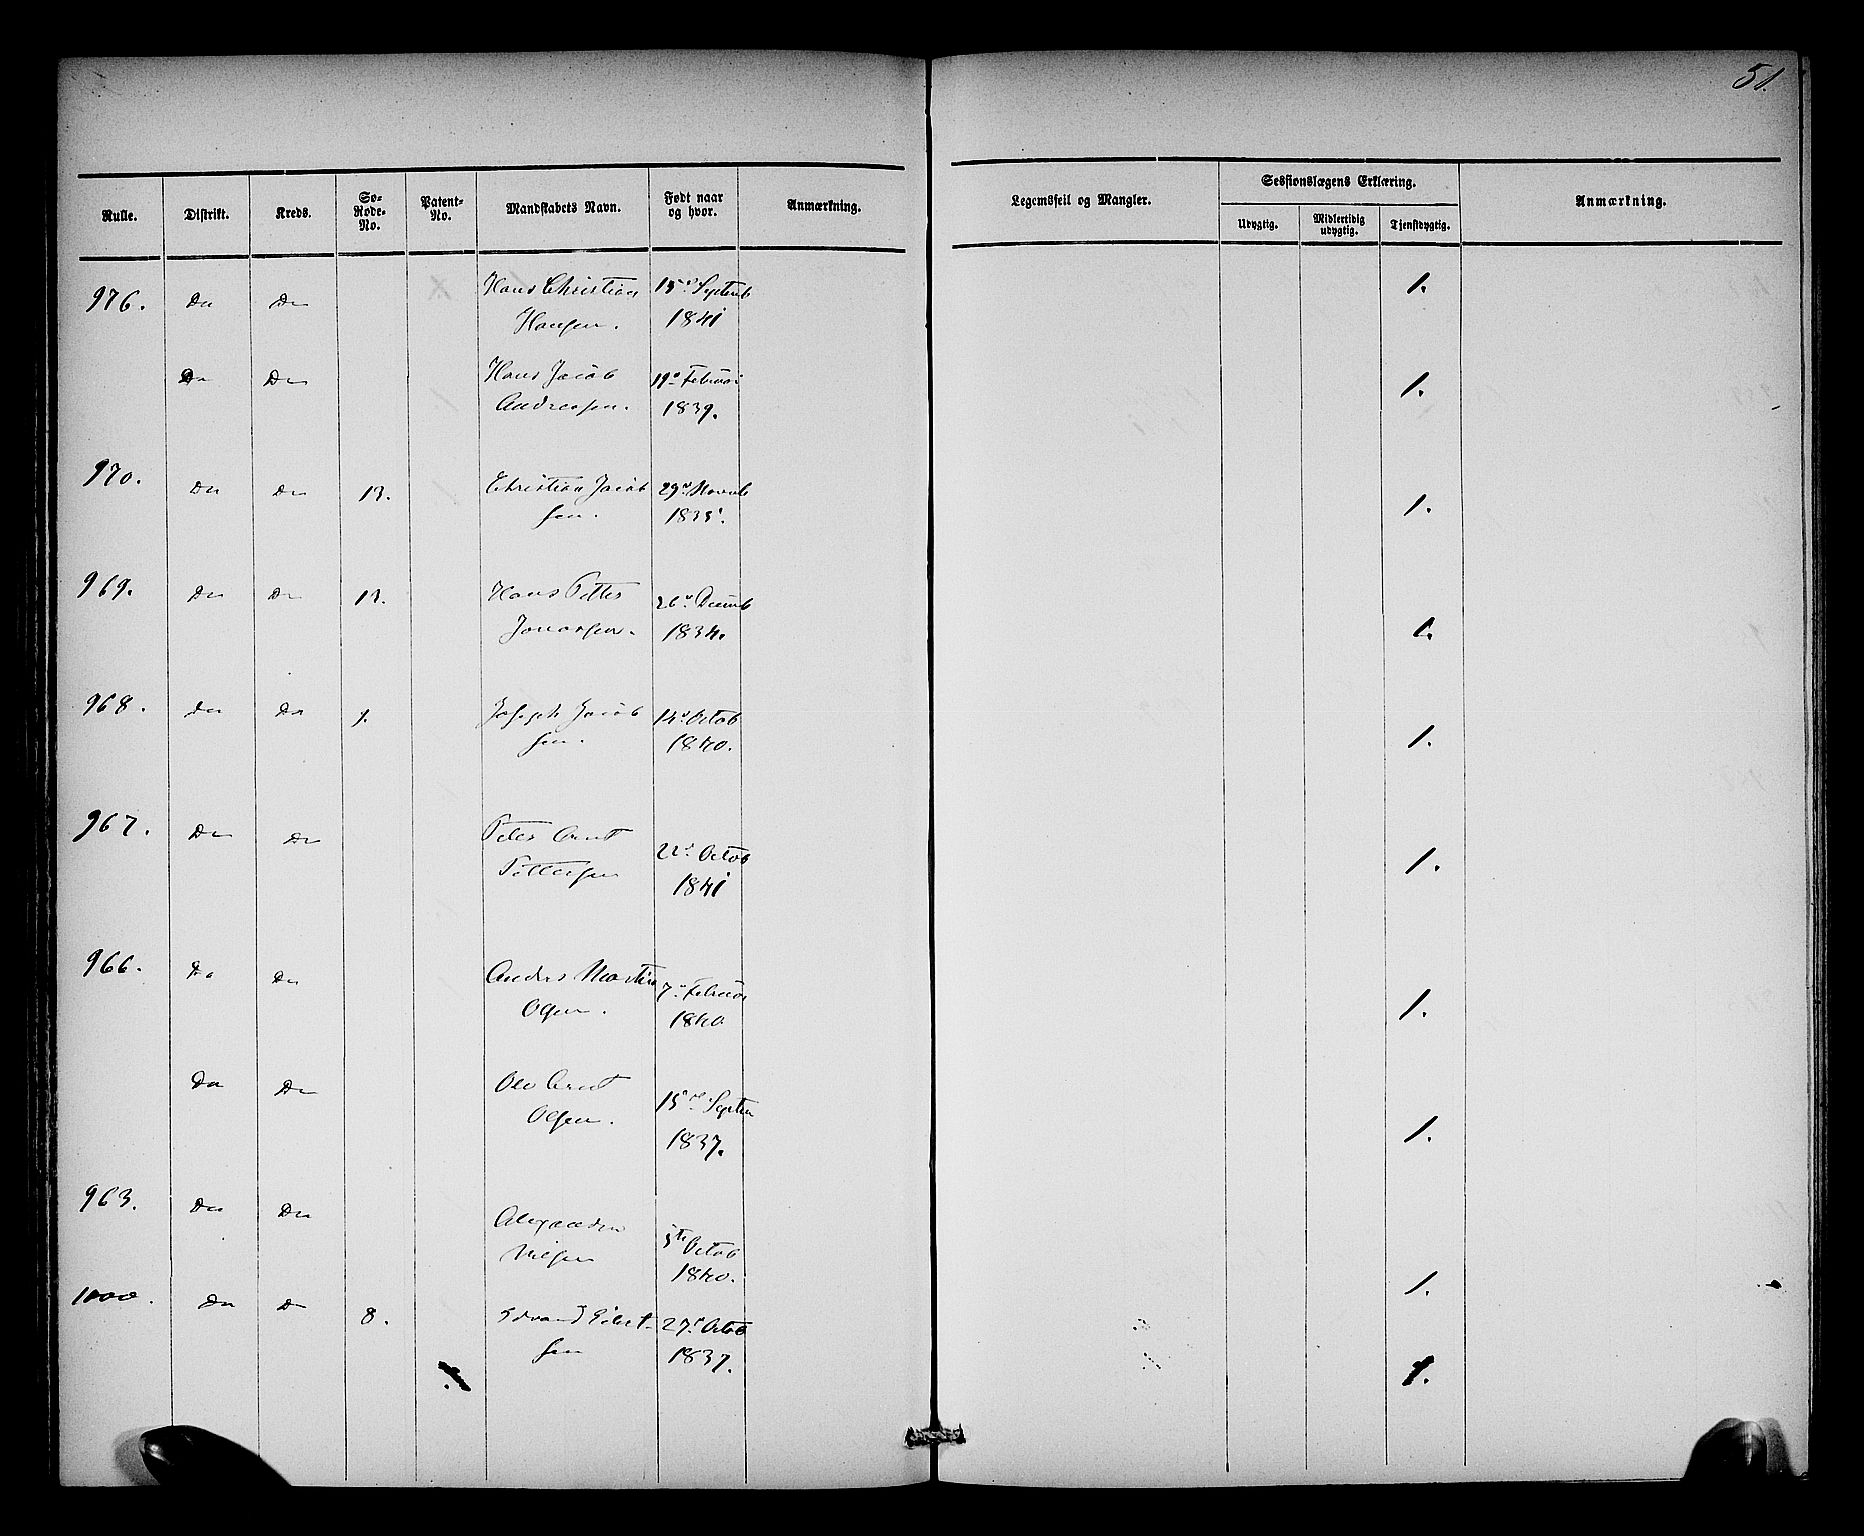 51.
Rulle. Distrikt. Kreds. Sø-Rode-No. Patent-No. Mandskabets Navn. Født naar og hvor. Anmærkning. Legemsfeil og Mangler. Sessionslægens Erklæring. Anmærkning.
Udygtig. Midlertidig udygtig. Tjenstdygtig.
976. Do Do Hans Christian 15de Septemb 1.
Hansen. 1841
Do Do Hans Jacob 19de Februar 1.
Andreasen. 1839.
970. Do Do 13. Christian Jacob 29de Novemb 1.
sen. 1835.
969. Do Do 13. Hans Petter 26de Decemb
Jonassen. 1834. 1.
968. Do Do 1. Joseph Jacob 14de Octob
sen. 1840. 1.
967. Do Do Peter Arnt 22de Octob
Pettersen 1841 1.
966. Do Do Anders Martin 7de Februar
Olsen. 1840 1.
Do Do Ole Arnt 15de Septem
Olsen. 1837. 1.
963. Do Do Alexander 5te Octob
Nilsen 1840. 1.
1000. Do Do 8. Edvard Eilert- 27de Octob
sen 1837. 1.